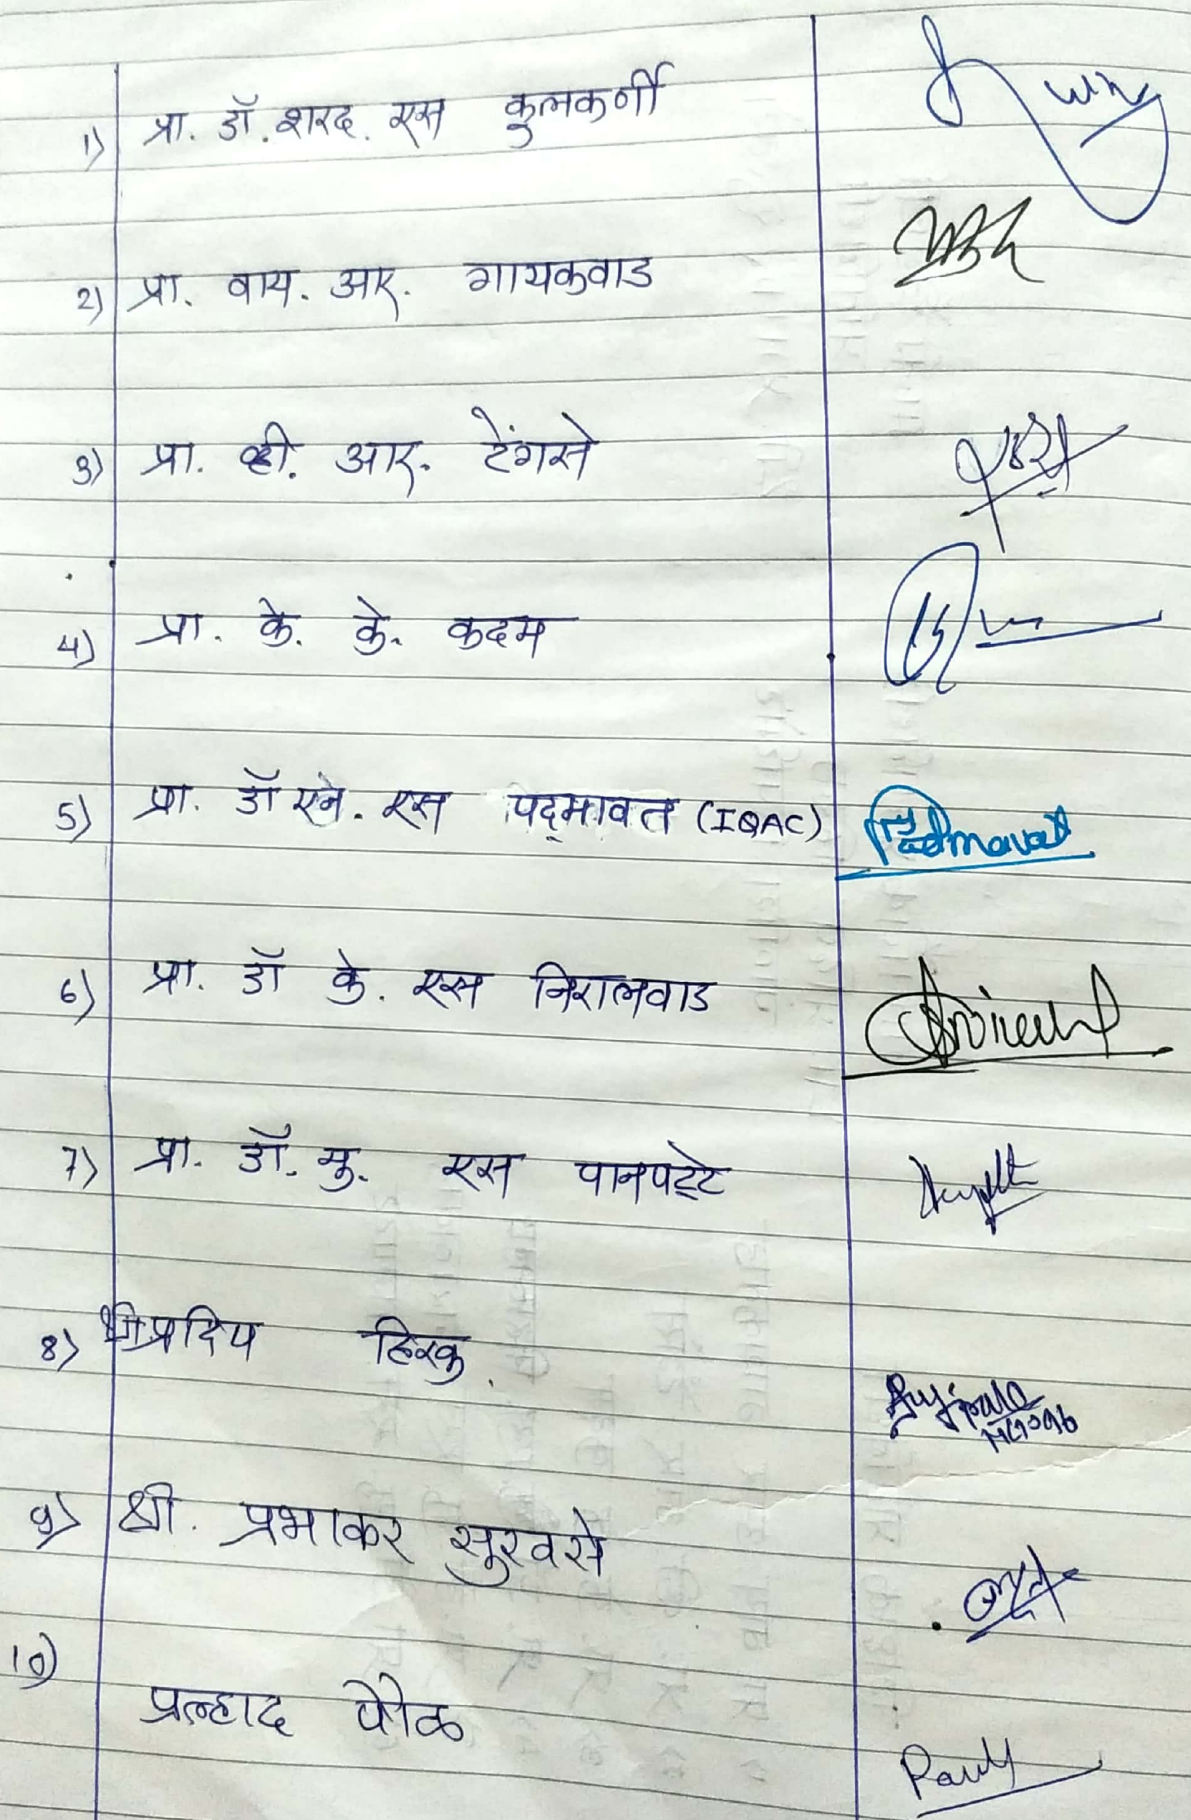 1) प्रा. डॉ. शरद. एस कुलकर्णी
2) प्रा. वाय. आर. गायकवाड
3) प्रा. व्ही. आर. टेंगसे
4) प्रा. के. के. कदम
5) प्रा. डॉ एन. एस पद्मावत (IQAC) Padmavat
6) प्रा. डॉ के. एस निरालवाड
7) प्रा. डॉ. मु. एस पानपट्टे
8) श्री प्रदिप
9) श्री. प्रभाकर सुरवसे
10)
प्रल्हाद पौळ